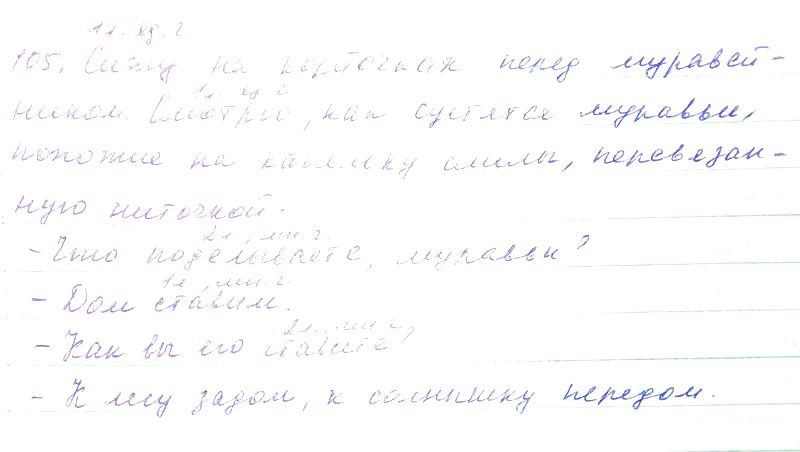 1л. ед. ч.
105. Сижу на корточках перед муравей-
1л. ед. ч.
ником. Смотрю, как суетятся муравьи,
похожие на капельку смолы, перевязан-
ную ниточкой.
2л., мн. ч.
- Что поделываете, муравьи?
1л., мн. ч.
- Дом ставим.
2л., мн. ч.,
- Как вы его ставите?
- К лесу задом, к солнышку передом.